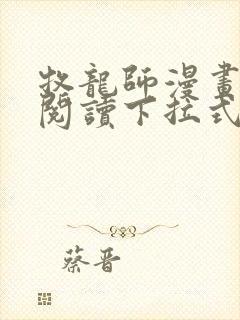 牧龍師漫畫
閱讀下拉式
蔡晋